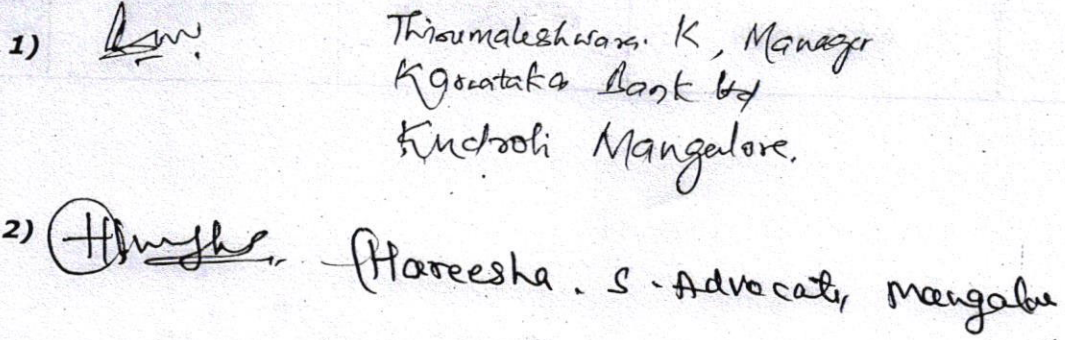 1) Thirumaleshwara. K, Manager
Karnataka Bank Ltd
Kudroli Mangalore.
2) (Hareesha. S. Advocate, Mangalore